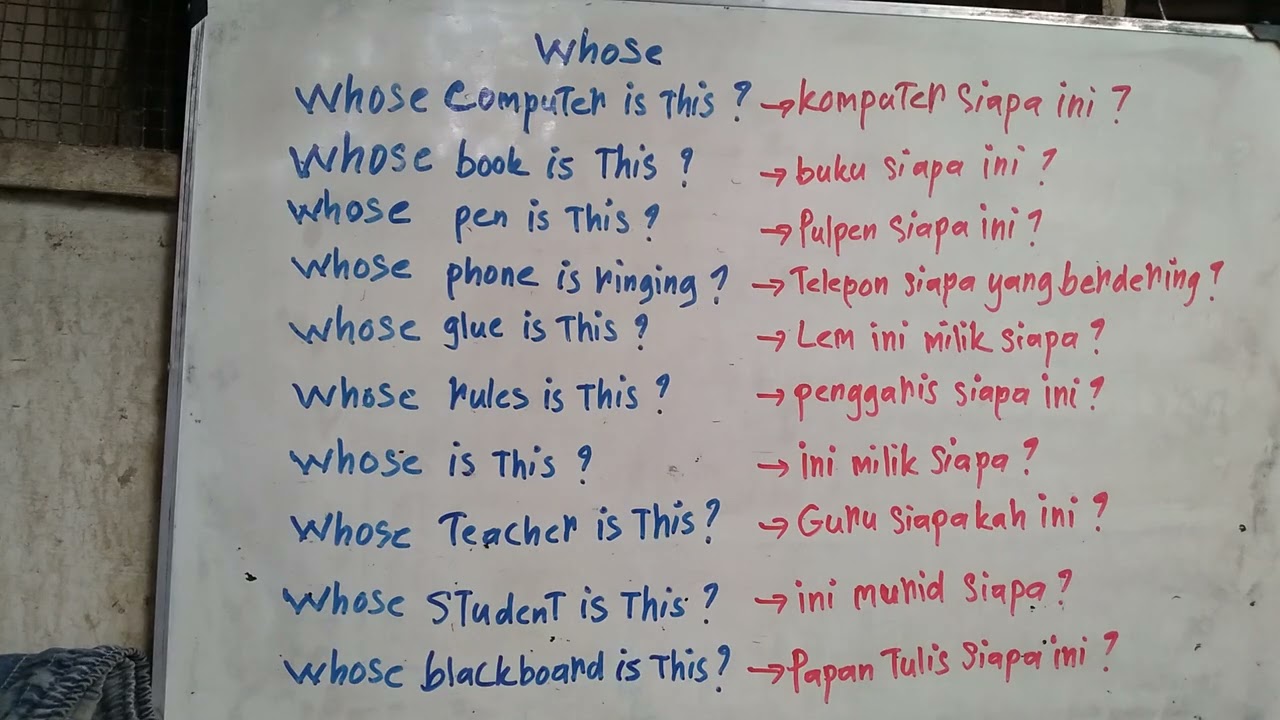 Whose
Whose Computer is This ? → komputer siapa ini ?
Whose book is This ? → buku siapa ini ?
Whose pen is This ? → Pulpen siapa ini ?
Whose phone is ringing ? → Telepon siapa yang berdering ?
Whose glue is This ? → Lem ini milik siapa ?
Whose rules is This ? → penggaris siapa ini ?
Whose is This ? → ini milik siapa ?
Whose Teacher is This ? → Guru siapakah ini ?
Whose Student is This ? → ini murid siapa ?
Whose blackboard is This ? → Papan Tulis siapa ini ?